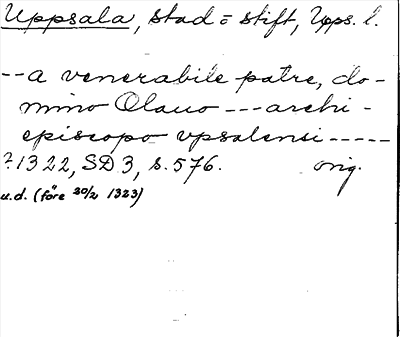 Uppsala, stad = stift, Upps. l.
--a venerabile patre, do-
mino Olauo ---archi-
episcopo vpsalensi-----
?1322, SD 3, s. 576. orig.
u.d. (före 20/2 1323)